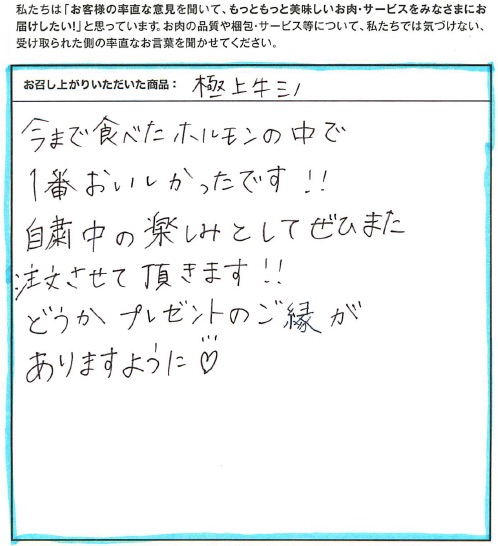 私たちは「お客様の率直な意見を聞いて、もっともっと美味しいお肉・サービスをみなさまにお
届けしたい！」と思っています。お肉の品質や梱包・サービス等について、私たちでは気づけない、
受け取られた側の率直なお言葉を聞かせてください。
お召し上がりいただいた商品： 極上牛ミノ
今まで食べたホルモンの中で
1番おいしかったです!!
自粛中の楽しみとしてぜひまた
注文させて頂きます!!
どうかプレゼントのご縁が
ありますように♡